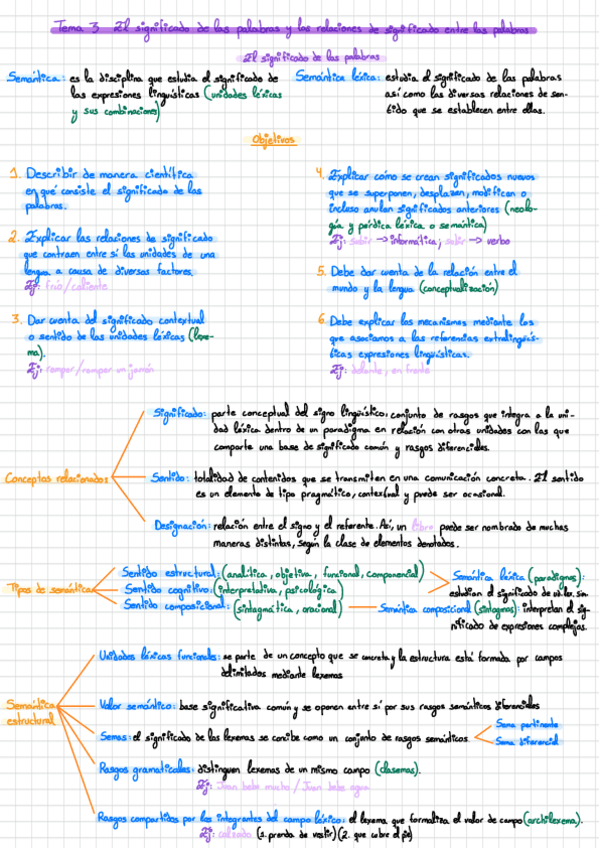 Tema 3 El significado de las palabras y las relaciones de significado entre las palabras
El significado de las palabras
Semántica: es la disciplina que estudia el significado de
las expresiones lingüísticas (unidades léxicas
y sus combinaciones)
Semántica léxica: estudia el significado de las palabras
así como las diversas relaciones de sen-
tido que se establecen entre ellas.
Objetivos
1. Describir de manera científica
en qué consiste el significado de las
palabras.
2. Explicar las relaciones de significado
que contraen entre sí las unidades de una
lengua a causa de diversos factores.
Ej: frío/caliente
3. Dar cuenta del significado contextual
o sentido de las unidades léxicas (lexe-
ma).
Ej: romper/romper un jamón
4. Explicar cómo se crean significados nuevos
que se superponen, desplazan, modifican o
incluso anulan significados anteriores (neolo-
gía y pérdida léxica o semántica)
Ej: subir → informática; subir → verbo
5. Debe dar cuenta de la relación entre el
mundo y la lengua (conceptualización)
6. Debe explicar los mecanismos mediante los
que asociamos a las referencias extralingüís-
ticas expresiones lingüísticas.
Ej: delante, en frente
Conceptos relacionados
Significado: parte conceptual del signo lingüístico, conjunto de rasgos que integra a la uni-
dad léxica dentro de un paradigma en relación con otras unidades con las que
comparte una base de significado común y rasgos diferenciales.
Sentido: totalidad de contenidos que se transmiten en una comunicación concreta. El sentido
es un elemento de tipo pragmático, contextual y puede ser ocasional.
Designación: relación entre el signo y el referente. Así, un libro puede ser nombrado de muchas
maneras distintas, según la clase de elementos denotados.
Tipos de semántica
Sentido estructural: (analítica, objetiva, funcional, componencial)
Sentido cognitivo: (interpretativa, psicológica)
Sentido composicional: (sintagmática, oracional)
Semántica léxica (paradigmas):
estudian el significado de
Semántica composicional (sintagmas): interpretan el sig-
nificado de expresiones complejas.
Semántica
estructural
Unidades léxicas funcionales: se parte de un concepto que se concreta y la estructura está formada por campos
delimitados mediante lexemas
Valor semántico: base significativa común y se oponen entre sí por sus rasgos semánticos diferenciales
Semas: el significado de los lexemas se concibe como un conjunto de rasgos semánticos.
Sema pertinente
Sema diferencial
Rasgos gramaticales: distinguen lexemas de un mismo campo (clasemas).
Ej: Juan bebe mucho / Juan bebe agua
Rasgos compartidos por los integrantes del campo léxico: el lexema que formaliza el valor de campo (archilexema).
Ej: calzado (1. prenda de vestir) (2. que cubre el pie)